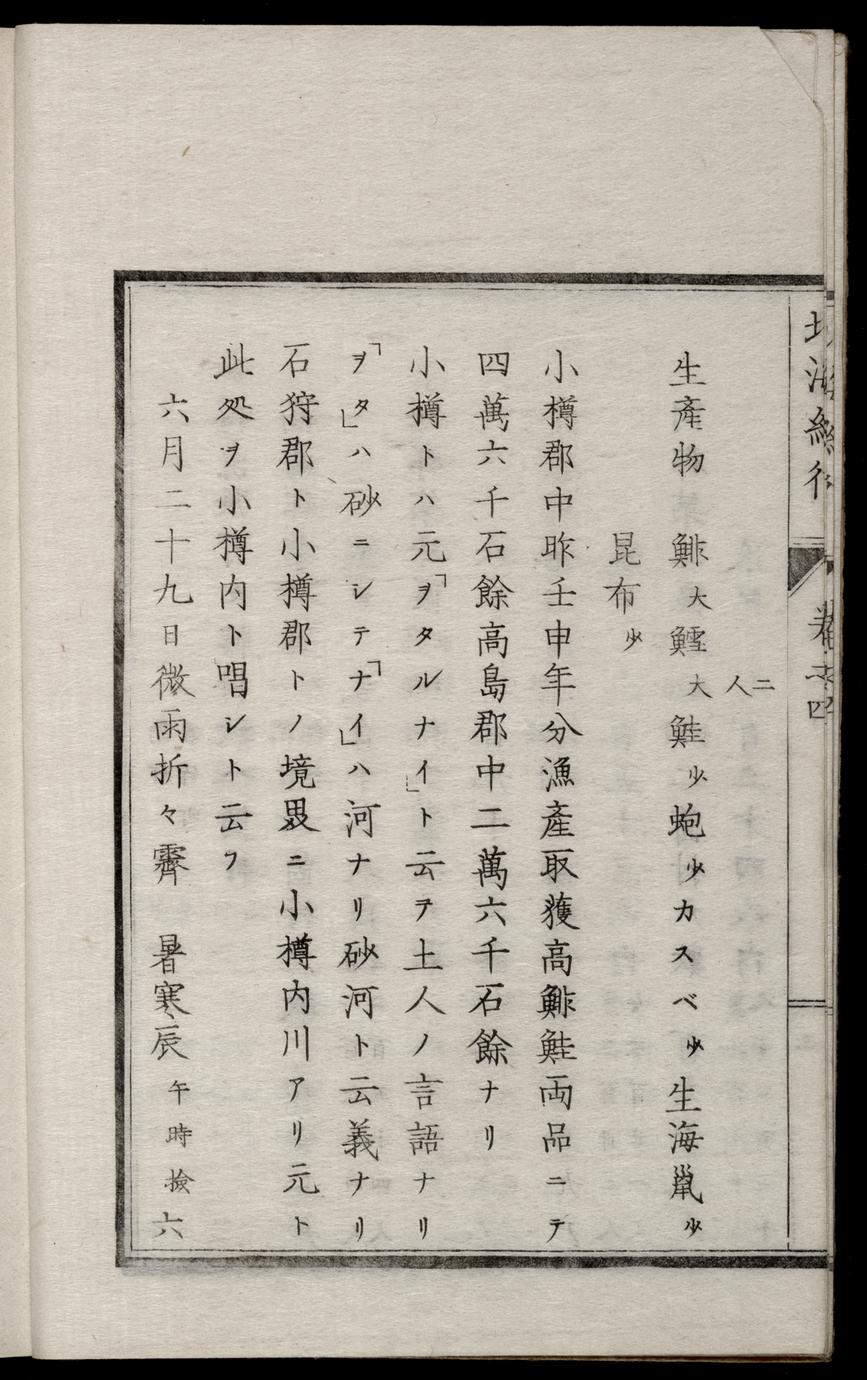 二人
生產物 鯡大鱈大鮭少蚫少カスベ少生海鼠少
昆布少
小樽郡中昨壬申年分漁產取獲高鯡鮭両品ニテ
四萬六千石餘高島郡中二萬六千石餘ナリ
小樽トハ元「ヲタルナイ」ト云テ土人ノ言語ナリ
「ヲタ」ハ砂ニシテ「ナイ」ハ河ナリ砂河ト云義ナリ
石狩郡ト小樽郡トノ境界ニ小樽内川アリ元ト
此処ヲ小樽内ト唱シト云フ
六月二十九日微雨折々霽 暑寒辰午時撿六